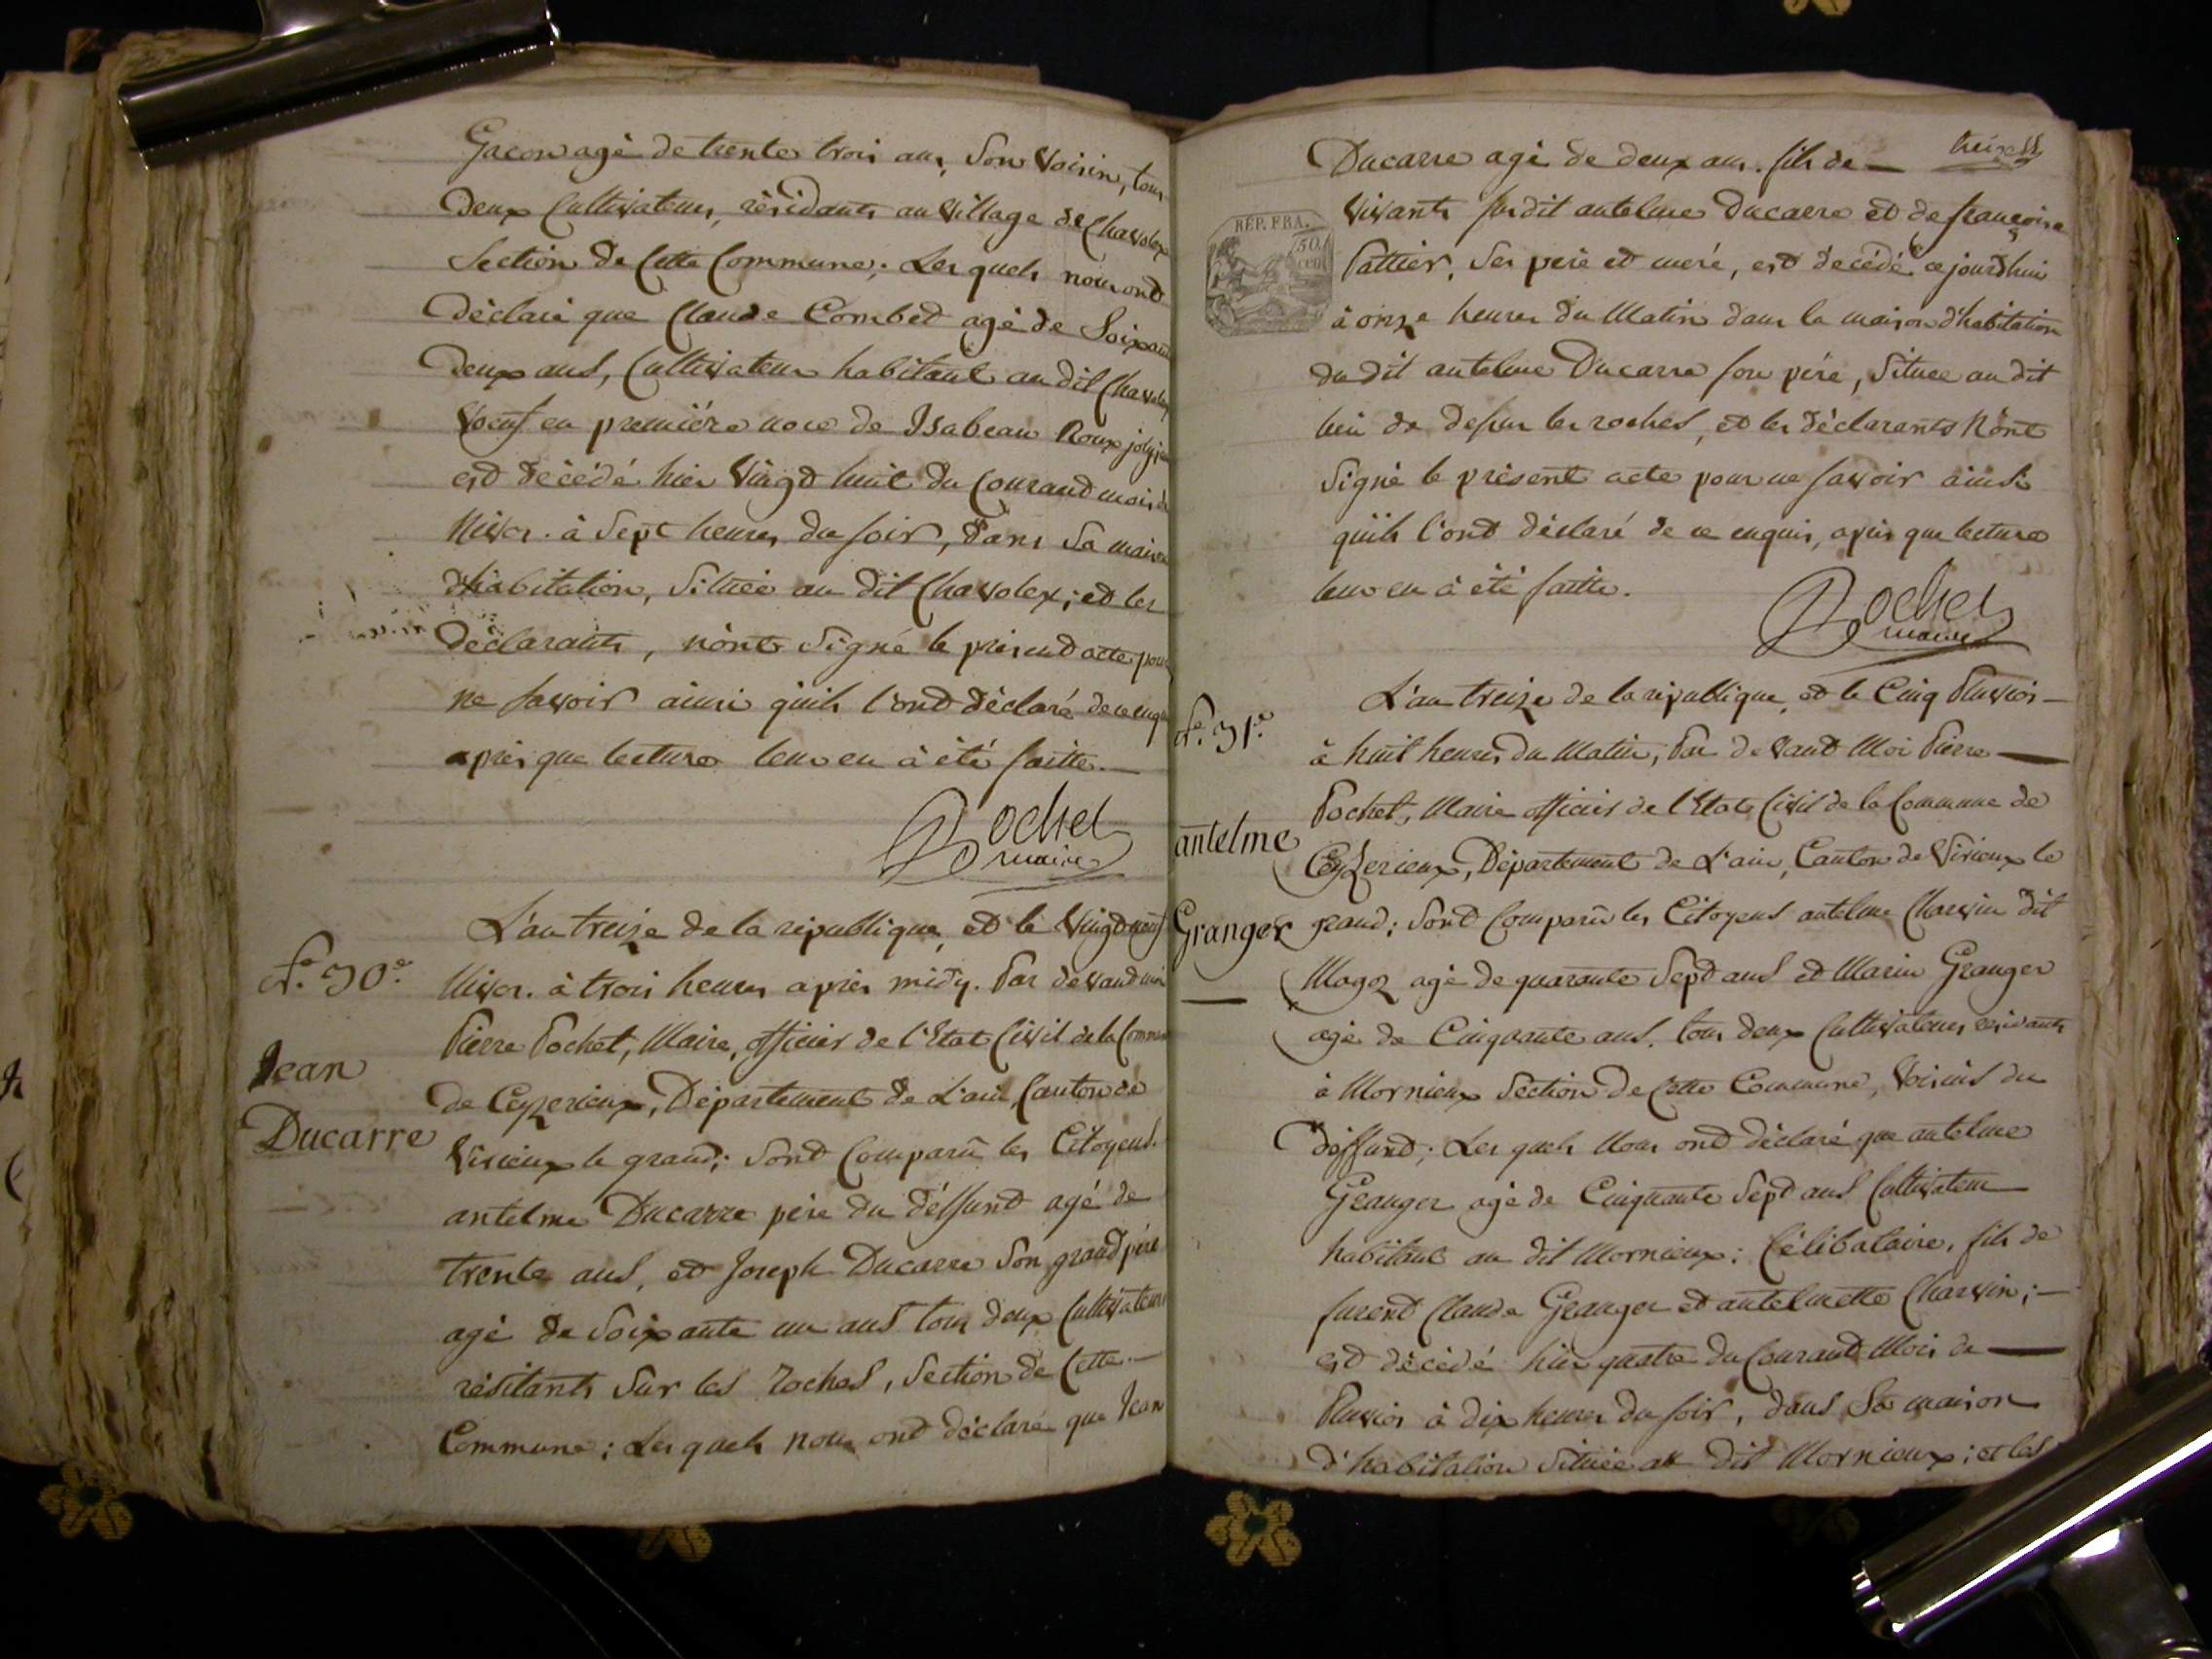 Gacon agé de trente trois ans, Son Voisin, tous
deux Cultivateurs, résidants au Village de Chavolex
Section de Cette Commune; Les quels nous ont
déclaré que Claude Combet agé de Soixante
deux ans, Cultivateur habitant au dit Chavolex
Voeuf en première noce de Isabeau Roux
est décédé hier Vingt huit du Courand mois de
Nivos. à Sept heures du soir, dans Sa maison
d'habitation, Située au dit Chavolex; et les
déclarants, n'ont Signé le present acte pour
ne savoir ainsi quils l'ont déclaré de ce enquis
après que lecture leur en à été faitte.
Pochet
maire
L'an treize de la république, et le Vingt neuf
N.º 30.e
Nivos. à trois heures après midy. Par devand moi
Pierre Pochet, Maire, officier de l'Etat Civil de la Commune
Jean
de Ceyzerieux, Département de L'ain, Canton de
Ducarre
Virieux le grand; Sont Comparû les Citoyens.
antelme Ducarre père du déffund agé de
trente ans, et Joseph Ducarre Son grand père
agé de Soixante un ans tous deux Cultivateurs
résitants Sur les roches, Section de Cette
Commune; Les quels nous ont déclaré que Jean
treize
Ducarre agé de deux ans. fils de
REP. FRA.
50.
cen.
Vivants sudit antelme Ducarre et de françoise
Pattier, Ses père et mere, est décédé ce jourd'hui
à onze heures du Matin dans la maison d'habitation
du dit antelme Ducarre son père, Située au dit
lieu de desur les roches, et les déclarants N'ont
Signé le présent acte pour ne savoir ainsi
quils l'ont déclaré de ce enquis, après que lecture
leur en à été faitte.
Pochet
maire
L'an treize de la république, et le Cinq Pluvios
N.º 31.e
à huit heures du Matin, Par de Vand Moi Pierre
Pochet, Maire officier de l'Etat Civil de la Commune de
antelme
Ceyzerieux, Département de L'ain, Canton de Virieux le
Granger
grand; Sont Comparû les Citoyens antelme Charvin dit
Magoz agé de quarante Sept ans et Marin Granger
agé de Cinquante ans. tous deux Cultivateurs residants
à Mornieux Section de Cette Commune, Voisins du
déffund; Les quels Nous ont déclaré que antelme
Granger agé de Cinquante Sept ans Cultivateur
habitant au dit Mornieux; Célibataire, fils de
furent Claude Granger et antelmette Charvin;
est décédé hier quatre du Courand Mois de
Pluvios à dix heures du soir, dans Sa maison
d'habitation Située au dit Mornieux; et les